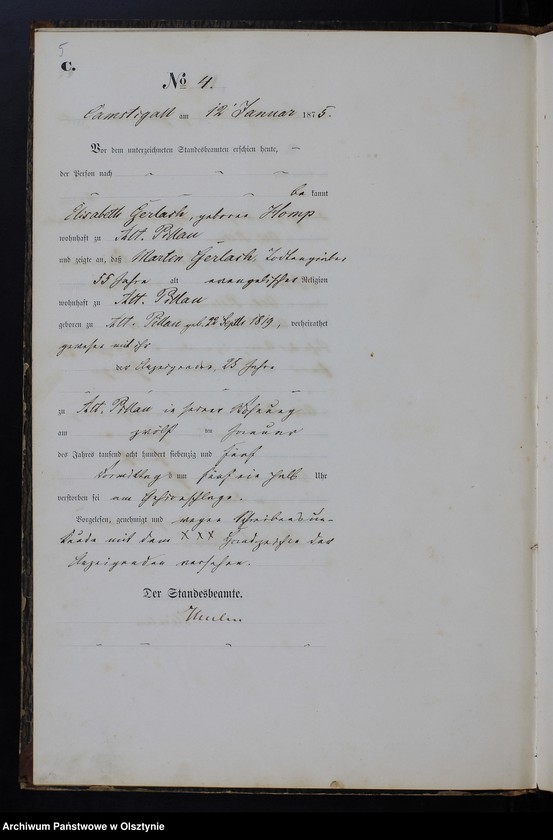 5
C.
No 4.
Camstigall am 12 Januar 1875.
Vor dem unterzeichneten Standesbeamten erschien heute,
der Person nach
be kannt
Elisabeth Gerlach, geborene Homp
wohnhaft zu Alt. Pillau
und zeigte an, daß Martin Gerlach, Todtengräber
55 Jahre alt evangelischer Religion
wohnhaft zu Alt. Pillau
geboren zu Alt. Pillau geb. 22 Septbr 1819, verheirathet
gewesen mit ihr
der Anzeigenden, 25 Jahre
zu Alt. Pillau in seiner Wohnung
am zwölf ten Januar
des Jahres tausend acht hundert siebenzig und fünf
Vormittags um fünf ein halb Uhr
verstorben sei am Gehirnschlage.
Vorgelesen, genehmigt und wegen Schreibensun-
kunde mit dem XXX Handzeichen der
Anzeigenden versehen.
Der Standesbeamte.
Archiwum Państwowe w Olsztynie